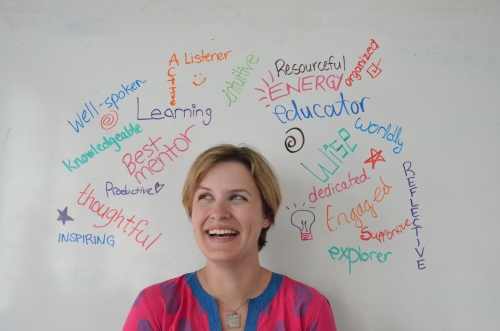 A Listener
Active
intuitive
Resourceful
organized
ENERGY
Well-spoken
Learning
educator
Worldly
Knowledgeable
Best
mentor
Wise
Productive
dedicated
REFLECTIVE
thoughtful
Engaged
Supportive
INSPIRING
explorer